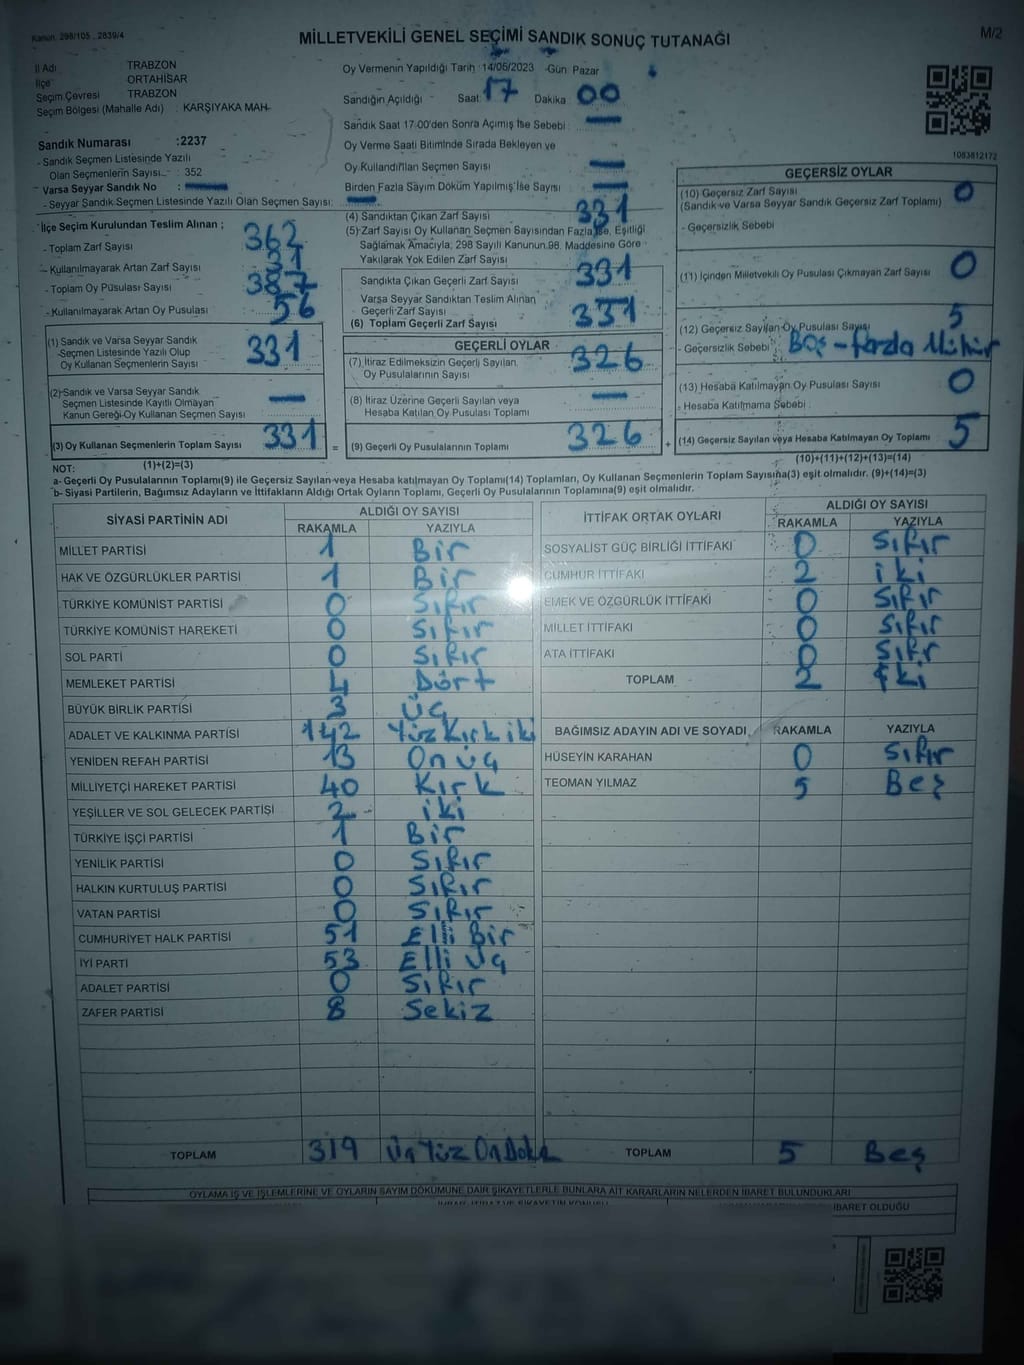 Kanun: 298/105 , 2839/4
MİLLETVEKİLİ GENEL SEÇİMİ SANDIK SONUÇ TUTANAĞI
M/2
İl Adı TRABZON
İlçe ORTAHİSAR
Seçim Çevresi TRABZON
Seçim Bölgesi (Mahalle Adı) : KARŞIYAKA MAH.
Sandık Numarası :2237
- Sandık Seçmen Listesinde Yazılı
Olan Seçmenlerin Sayısı : 352
- Varsa Seyyar Sandık No : —
- Seyyar Sandık Seçmen Listesinde Yazılı Olan Seçmen Sayısı: —
Oy Vermenin Yapıldığı Tarih :14/05/2023 Gün: Pazar
Sandığın Açıldığı Saat 17 Dakika 00
Sandık Saat 17:00'den Sonra Açımış İse Sebebi : —
Oy Verme Saati Bitiminde Sırada Bekleyen ve
Oy Kullandırılan Seçmen Sayısı —
Birden Fazla Sayım Döküm Yapılmış İse Sayısı —
1083812172
İlçe Seçim Kurulundan Teslim Alınan ;
- Toplam Zarf Sayısı 362
- Kullanılmayarak Artan Zarf Sayısı 31
- Toplam Oy Pusulası Sayısı 387
- Kullanılmayarak Artan Oy Pusulası 56
(1) Sandık ve Varsa Seyyar Sandık
Seçmen Listesinde Yazılı Olup
Oy Kullanan Seçmenlerin Sayısı 331
(2) Sandık ve Varsa Seyyar Sandık
Seçmen Listesinde Kayıtlı Olmayan
Kanun Gereği Oy Kullanan Seçmen Sayısı —
(3) Oy Kullanan Seçmenlerin Toplam Sayısı 331 =
(1)+(2)=(3)
(4) Sandıktan Çıkan Zarf Sayısı 331
(5) Zarf Sayısı Oy Kullanan Seçmen Sayısından Fazla ise, Eşitliği
Sağlamak Amacıyla, 298 Sayılı Kanunun 98. Maddesine Göre
Yakılarak Yok Edilen Zarf Sayısı
Sandıkta Çıkan Geçerli Zarf Sayısı 331
Varsa Seyyar Sandıktan Teslim Alınan
Geçerli Zarf Sayısı
(6) Toplam Geçerli Zarf Sayısı 331
GEÇERLİ OYLAR
(7) İtiraz Edilmeksizin Geçerli Sayılan
Oy Pusulalarının Sayısı 326
(8) İtiraz Üzerine Geçerli Sayılan veya
Hesaba Katılan Oy Pusulası Toplamı —
(9) Geçerli Oy Pusulalarının Toplamı 326 +
GEÇERSİZ OYLAR
(10) Geçersiz Zarf Sayısı 0
(Sandık ve Varsa Seyyar Sandık Geçersiz Zarf Toplamı)
- Geçersizlik Sebebi
(11) İçinden Milletvekili Oy Pusulası Çıkmayan Zarf Sayısı 0
(12) Geçersiz Sayılan Oy Pusulası Sayısı 5
- Geçersizlik Sebebi : Boş - Fazla Mühür
(13) Hesaba Katılmayan Oy Pusulası Sayısı 0
- Hesaba Katılmama Sebebi :
(14) Geçersiz Sayılan veya Hesaba Katılmayan Oy Toplamı 5
(10)+(11)+(12)+(13)=(14)
NOT:
a- Geçerli Oy Pusulaları Toplamı(9) ile Geçersiz Sayılan veya Hesaba katılmayan Oy Toplamı(14) Toplamları, Oy Kullanan Seçmenlerin Toplam Sayısına(3) eşit olmalıdır. (9)+(14)=(3)
b- Siyasi Partilerin, Bağımsız Adayların ve İttifakların Aldığı Ortak Oyların Toplamı, Geçerli Oy Pusulalarının Toplamına(9) eşit olmalıdır.
SİYASİ PARTİNİN ADI ALDIĞI OY SAYISI
RAKAMLA YAZIYLA
MİLLET PARTİSİ 1 Bir
HAK VE ÖZGÜRLÜKLER PARTİSİ 1 Bir
TÜRKİYE KOMÜNİST PARTİSİ 0 Sıfır
TÜRKİYE KOMÜNİST HAREKETİ 0 Sıfır
SOL PARTİ 0 Sıfır
MEMLEKET PARTİSİ 4 Dört
BÜYÜK BİRLİK PARTİSİ 3 Üç
ADALET VE KALKINMA PARTİSİ 142 Yüz Kırk iki
YENİDEN REFAH PARTİSİ 13 On üç
MİLLİYETÇİ HAREKET PARTİSİ 40 Kırk
YEŞİLLER VE SOL GELECEK PARTİSİ 2 iki
TÜRKİYE İŞÇİ PARTİSİ 1 Bir
YENİLİK PARTİSİ 0 Sıfır
HALKIN KURTULUŞ PARTİSİ 0 Sıfır
VATAN PARTİSİ 0 Sıfır
CUMHURİYET HALK PARTİSİ 51 Elli Bir
İYİ PARTİ 53 Elli Üç
ADALET PARTİSİ 0 Sıfır
ZAFER PARTİSİ 8 Sekiz
TOPLAM 319 Üç Yüz On
İTTİFAK ORTAK OYLARI ALDIĞI OY SAYISI
RAKAMLA YAZIYLA
SOSYALİST GÜÇ BİRLİĞİ İTTİFAKI 0 Sıfır
CUMHUR İTTİFAKI 2 iki
EMEK VE ÖZGÜRLÜK İTTİFAKI 0 Sıfır
MİLLET İTTİFAKI 0 Sıfır
ATA İTTİFAKI 0 Sıfır
TOPLAM 2 İki
BAĞIMSIZ ADAYIN ADI VE SOYADI RAKAMLA YAZIYLA
HÜSEYİN KARAHAN 0 Sıfır
TEOMAN YILMAZ 5 Beş
TOPLAM 5 Beş
OYLAMA İŞ VE İŞLEMLERİNE VE OYLARIN SAYIM DÖKÜMÜNE DAİR ŞİKAYETLERLE BUNLARA AİT KARARLARIN NELERDEN İBARET BULUNDUKLARI
İBARET OLDUĞU